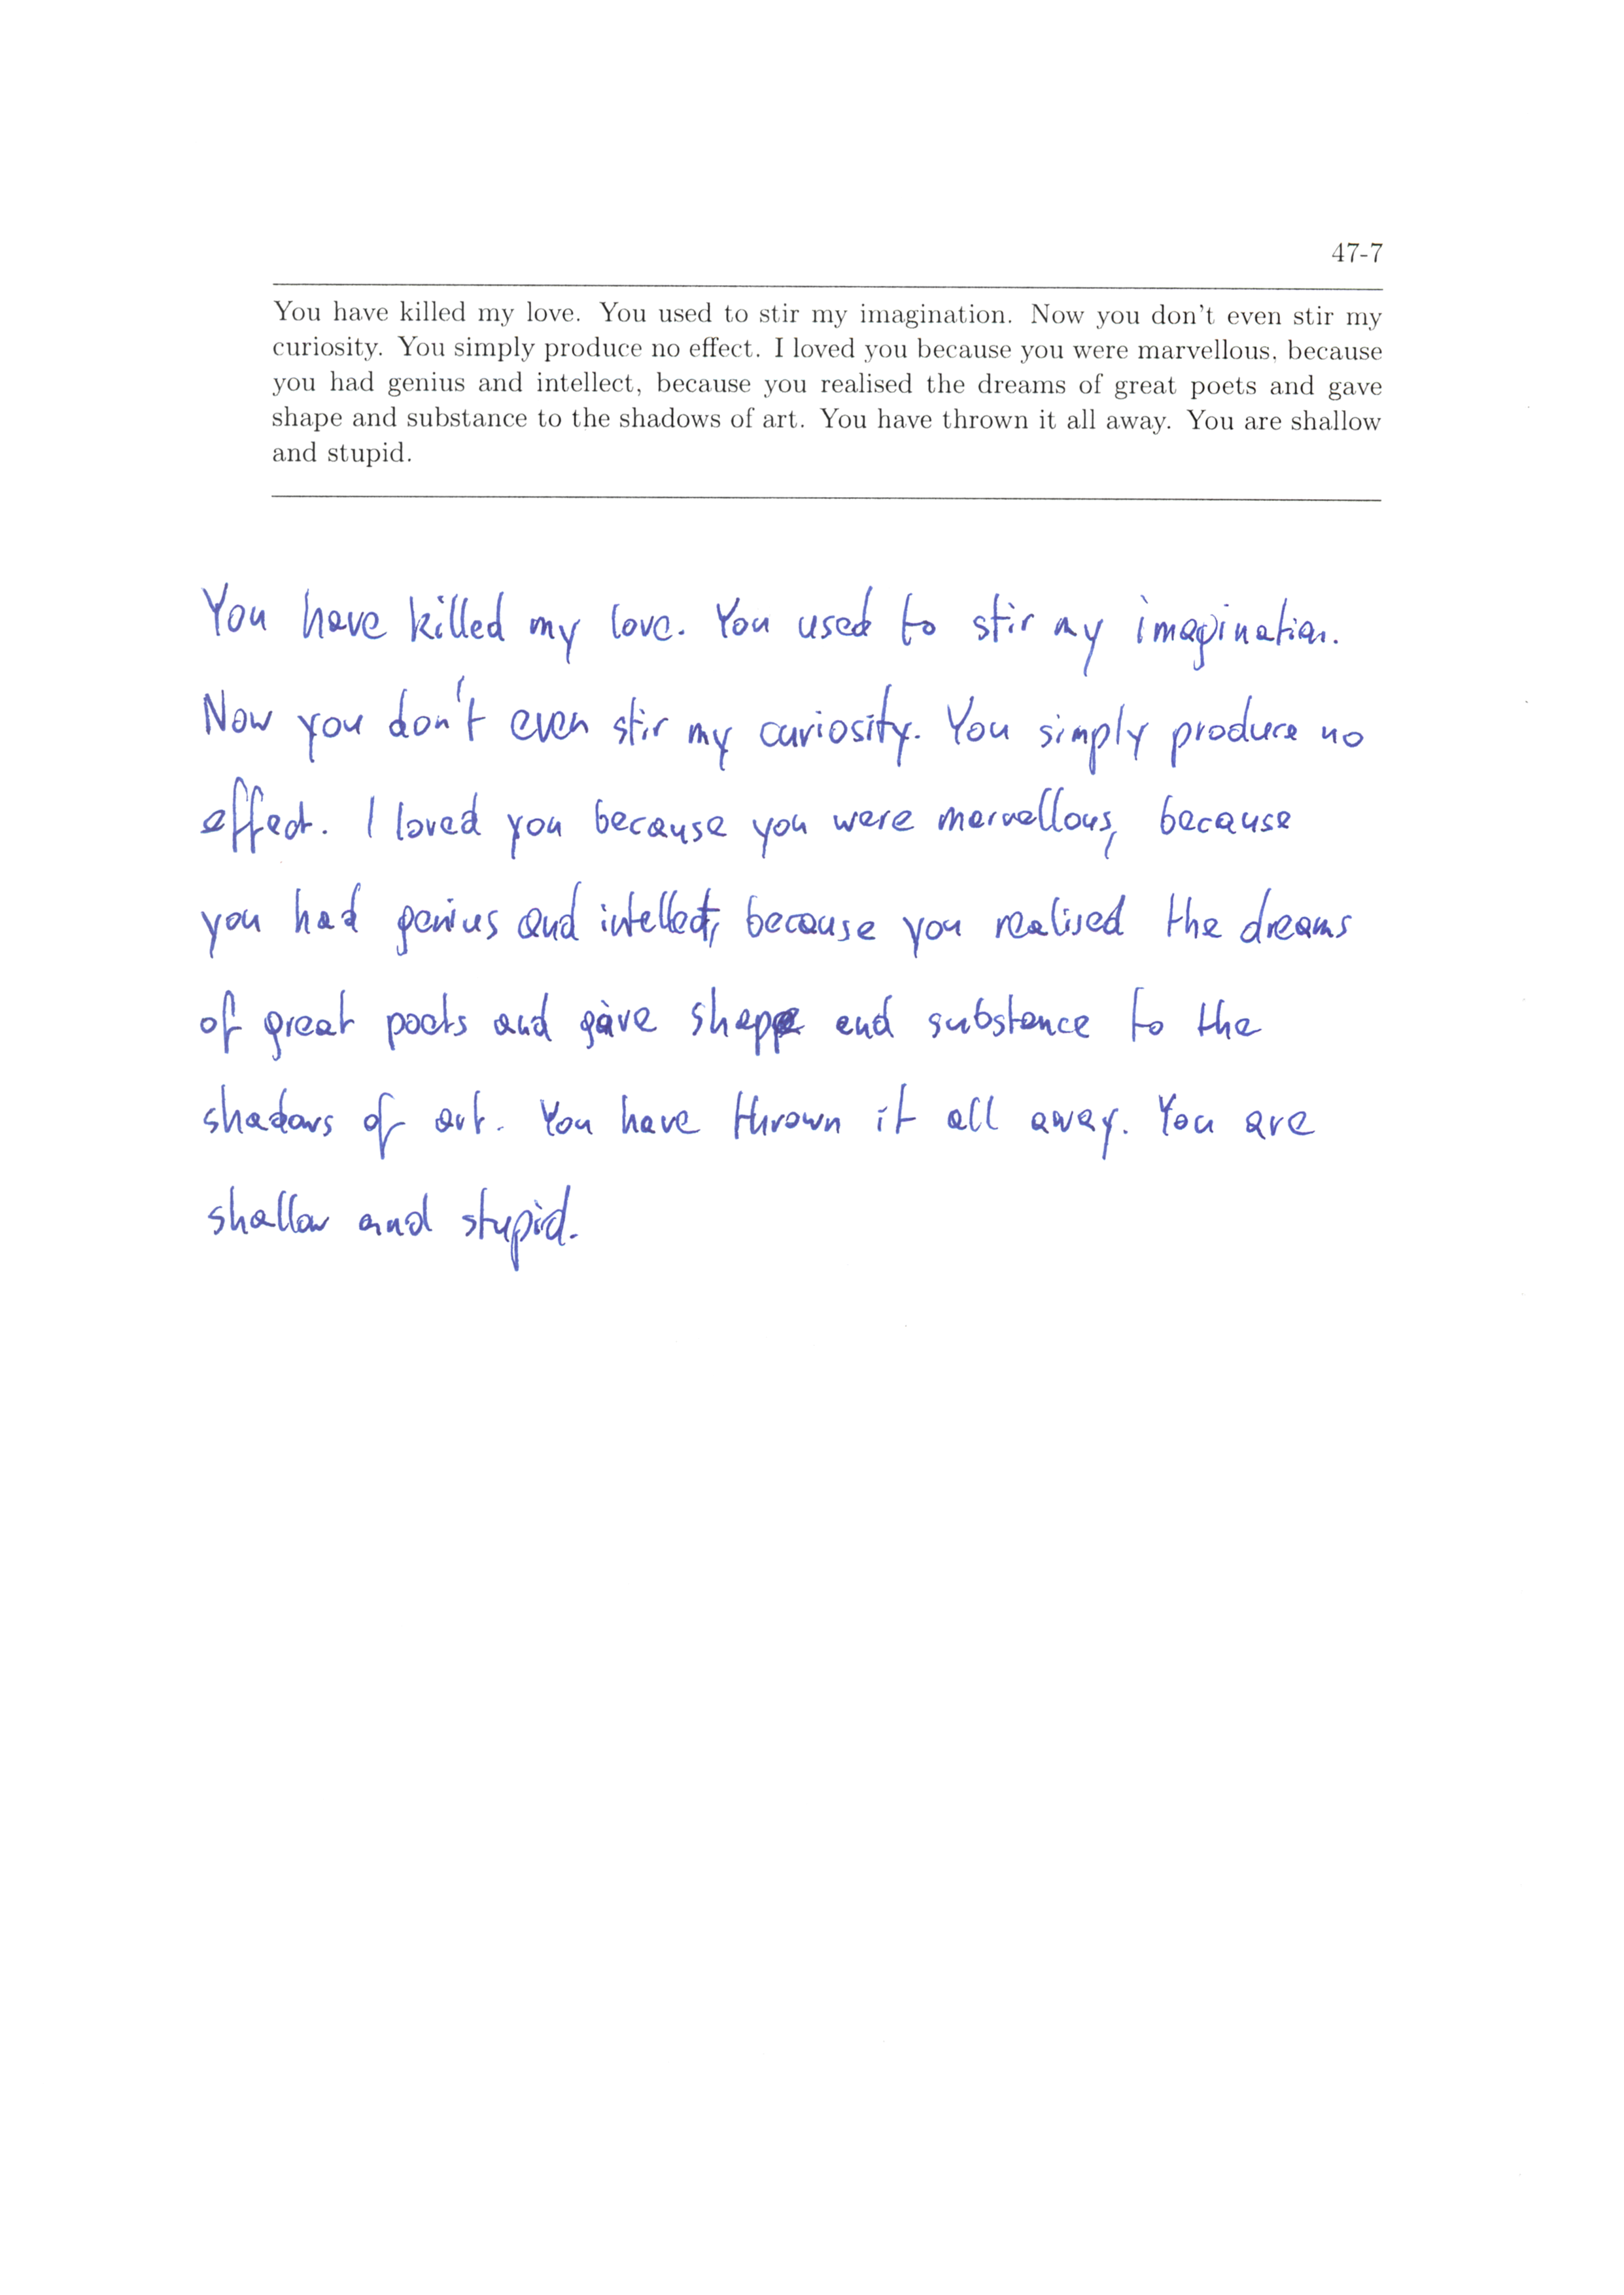 47-7
You have killed my love. You used to stir my imagination. Now you don't even stir my
curiosity. You simply produce no effect. I loved you because you were marvellous, because
you had genius and intellect, because you realised the dreams of great poets and gave
shape and substance to the shadows of art. You have thrown it all away. You are shallow
and stupid.
You have killed my love. You used to stir my imagination.
Now you don't even stir my curiosity. You simply produce no
effect. I loved you because you were marvellous, because
you had genius and intellect, because you realised the dreams
of great poets and gave shape and substance to the
shadows of art. You have thrown it all away. You are
shallow and stupid.